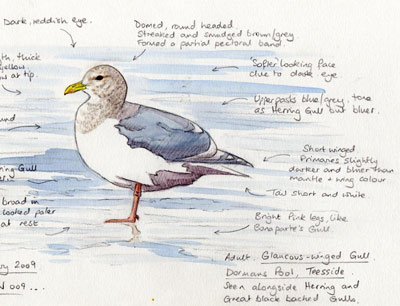 Dark, reddish eye.
Domed, round headed
Streaked and smudged brown/grey
Formed a partial pectoral band
th, thick
yellow
ow at tip.
'Softer' looking face
clue to dark eye
Upperparts blue/grey, tone
as Herring Gull but bluer.
und
Short winged
Primaries slightly
darker and bluer than
mantle + wing colour
ring Gull
Tail short and white
broad in
looked paler
at rest
Bright Pink legs, like
Bonaparte's Gull
ry 2009
009 ....
Adult, Glaucous-winged Gull
Dormans Pool, Teesside.
Seen alongside Herring and
Great black backed Gulls.